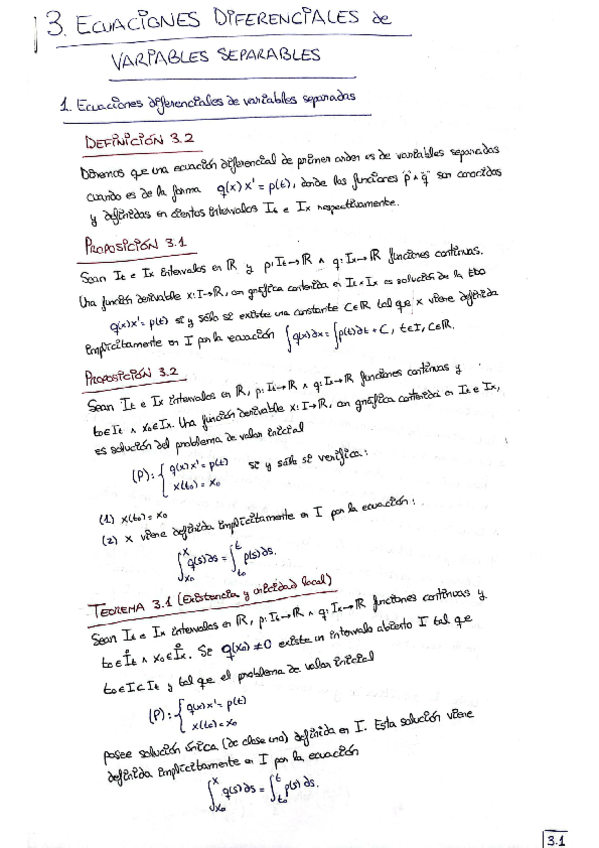 3. ECUACIONES DIFERENCIALES de
VARIABLES SEPARABLES
1. Ecuaciones diferenciales de variables separadas
DEFINICIÓN 3.2
Diremos que una ecuación diferencial de primer orden es de variables separadas
cuando es de la forma q(x) x' = p(t), donde las funciones "p" ∧ "q" son conocidas
y definidas en ciertos intervalos It e Ix respectivamente.
PROPOSICIÓN 3.1
Sean It e Ix intervalos en ℝ y p: It→ℝ ∧ q: Ix→ℝ funciones continuas.
Una función derivable x: I→ℝ, con gráfica contenida en It×Ix es solución de la
q(x)x' = p(t) si y sólo si existe una constante C∈ℝ tal que x viene definida
implícitamente en I por la ecuación ∫q(x)dx = ∫p(t)dt + C, t∈I, C∈ℝ.
PROPOSICIÓN 3.2
Sean It e Ix intervalos en ℝ, p: It→ℝ ∧ q: Ix→ℝ funciones continuas y
t₀∈It ∧ x₀∈Ix. Una función derivable x: I→ℝ, con gráfica contenida en It e Ix,
es solución del problema de valor inicial
(P): { q(x)x' = p(t) si y sólo si verifica:
x(t₀) = x₀
(1) x(t₀) = x₀
(2) x viene definida implícitamente en I por la ecuación:
∫_{x₀}^{x} q(s)ds = ∫_{t₀}^{t} p(s)ds.
TEOREMA 3.1 (Existencia y unicidad local)
Sean It e Ix intervalos en ℝ, p: It→ℝ ∧ q: Ix→ℝ funciones continuas y
t₀∈I̊t ∧ x₀∈I̊x. Si q(x₀) ≠ 0 existe un intervalo abierto I tal que
t₀∈I⊂It y tal que el problema de valor inicial
(P): { q(x)x' = p(t)
x(t₀) = x₀
posee solución única (de clase uno) definida en I. Esta solución viene
definida implícitamente en I por la ecuación
∫_{x₀}^{x} q(s)ds = ∫_{t₀}^{t} p(s)ds.
3.1